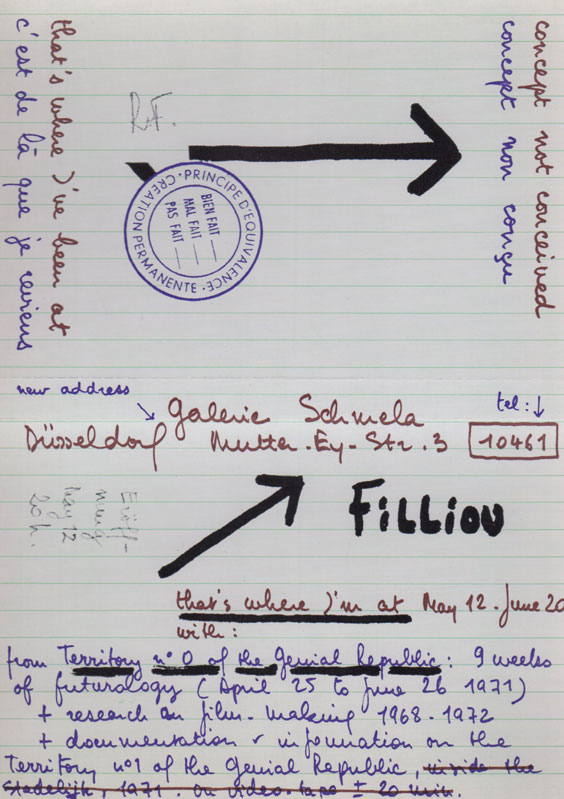 concept not conceived
concept non conçu
that's where I've been at
c'est de là que je reviens
R.F.
PRINCIPE D'EQUIVALENCE · CREATION PERMANENTE ·
BIEN FAIT —
MAL FAIT —
PAS FAIT —
new address
tel:
Galerie Schmela
Düsseldorf Mutter-Ey-Str. 3 10461
Eröff-
nung
May 12
20h.
FiLLiOU
that's where I'm at May 12 - June 20
with:
from Territory n° 0 of the Genial Republic: 9 weeks
of futurology (April 25 to June 26 1971)
+ research on film-making 1968-1972
+ documentation & information on the
Territory n°1 of the Genial Republic, inside the
Stedelijk, 1971. on video-tape ± 20 min.